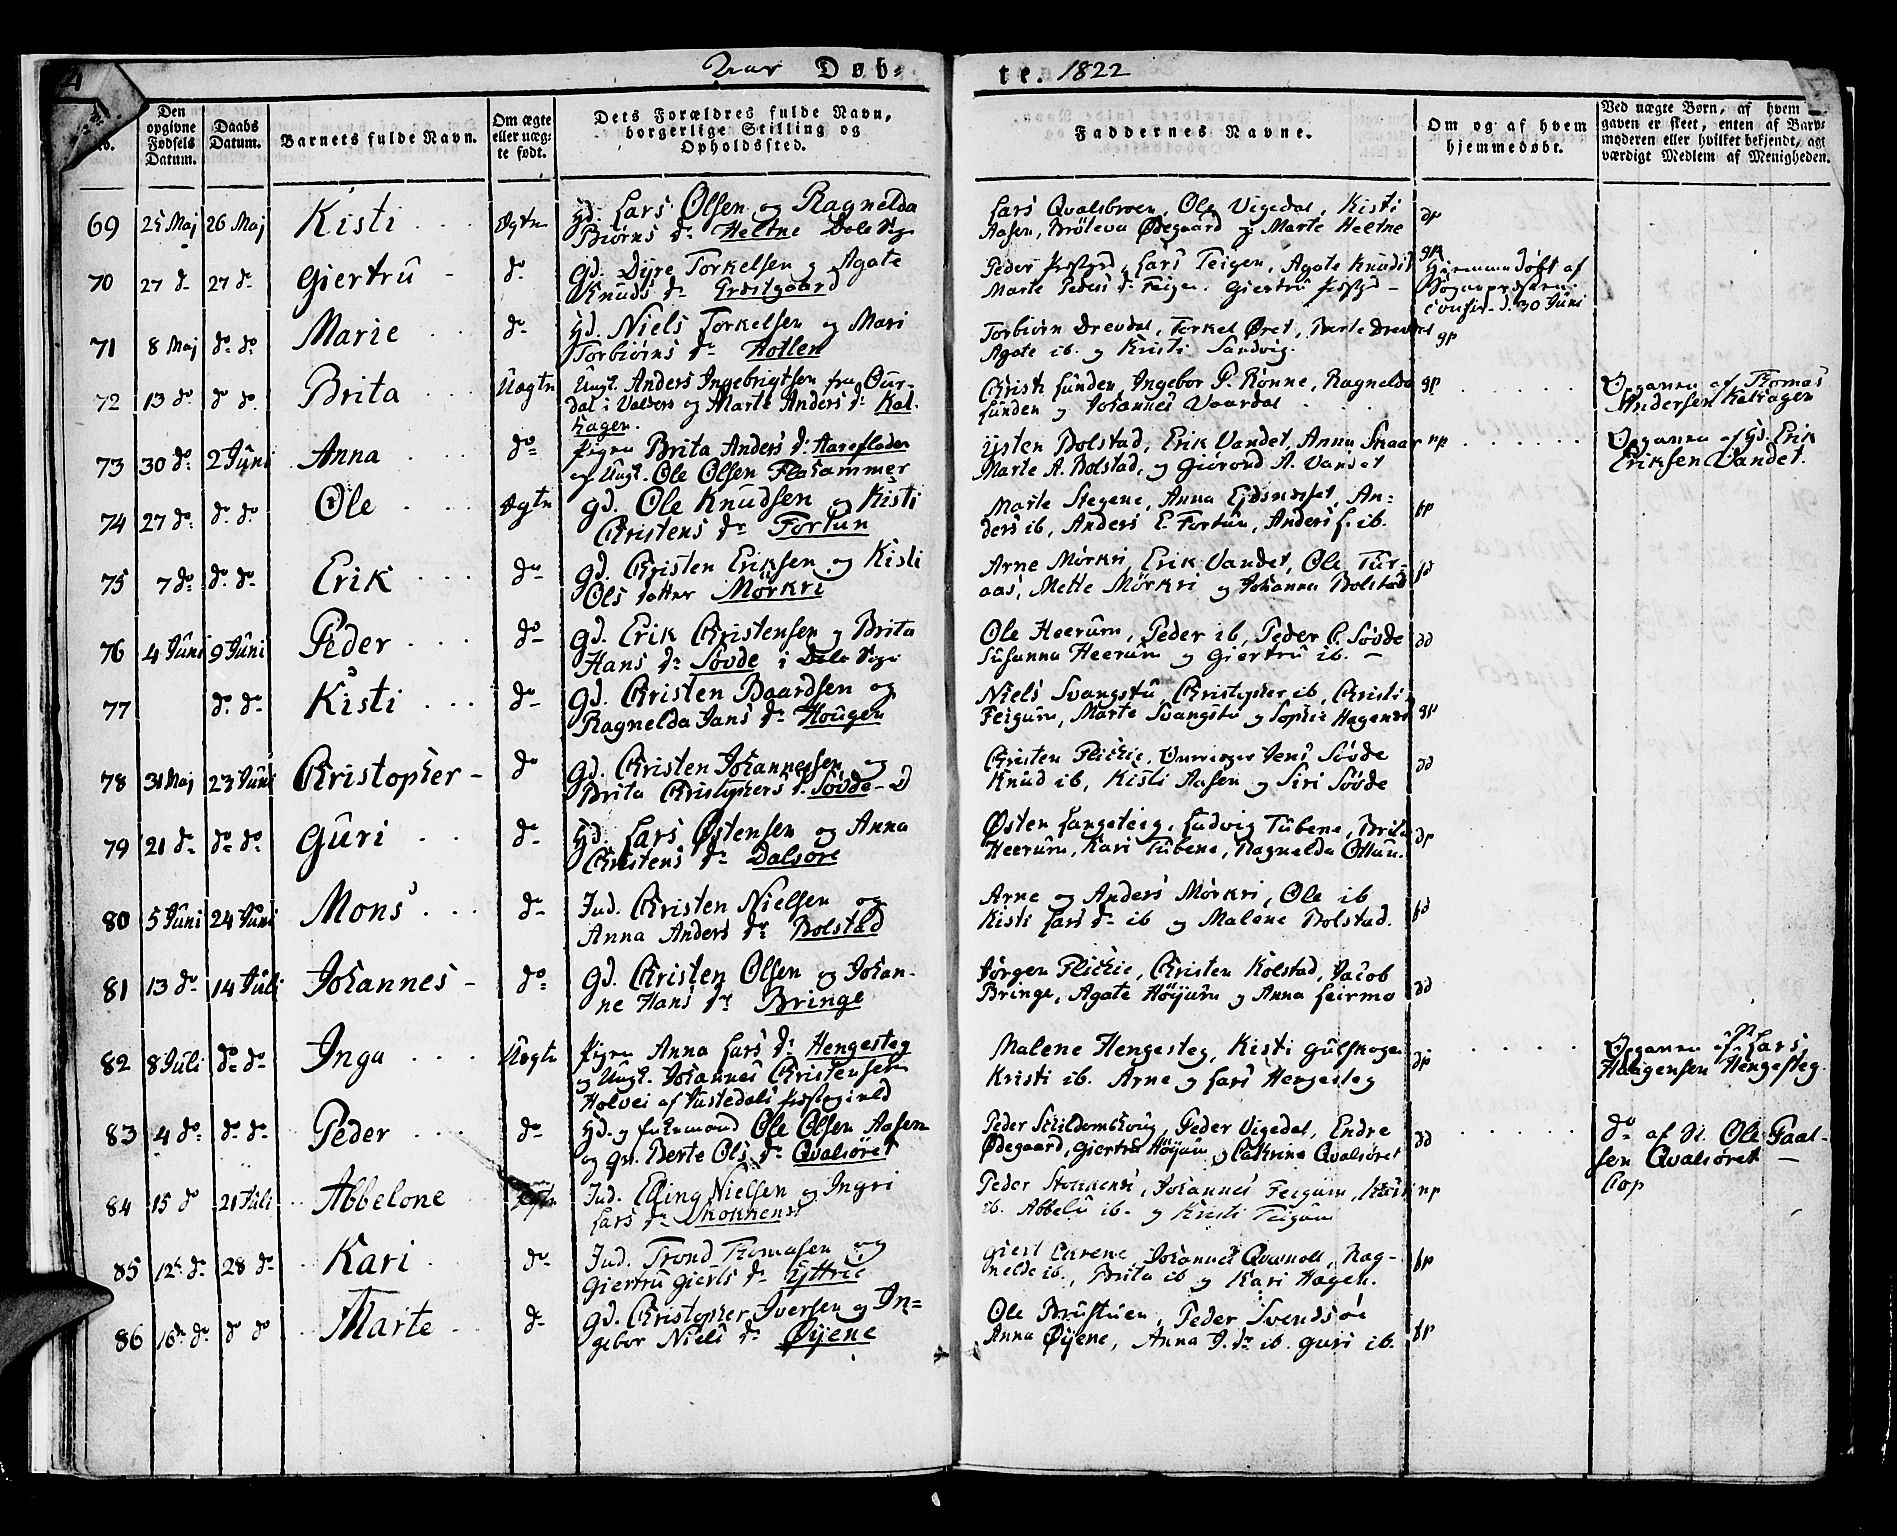 Døb-
te. 1822
Den opgivne Fødsels Datum.
Daabs Datum.
Barnets fulde Navn.
Om ægte eller uæg- te født.
Dets Forældres fulde Navn, borgerlige Stilling og Opholdssted.
Faddernes Navne.
Om og af hvem hjemmedøbt.
Ved uægte Børn, af hvem
gaven er skeet, enten af Barn-
moderen eller hvilket bekjendt, agt
værdigt Medlem af Menigheden.
69 25 Maj 26 Maj Kisti Ægte gd. Lars Olsen og Ragnelda
Biørns dr Heltne Dale Sogn
Lars Qvalsbroen, Ole Vigedal, Kisti
Aasen, Ødegaard og Marte Heltne
70 27 do 27 do Giertru do gd. Dyre Torkelsen og Agate
Knuds dr Prestgaard
Peder Lars Teigen, Agate Knuds
Marte Peders dr Teigen. Giertru
Hjemmedøbt af
30 Juni
71 8 Maj do do Marie do gd. Niels Torkelsen og Mari
Torbiørns dr
Torbiørn Drevdal, Torkel Øret, Drevdal
Agate ib. og Kristi Sandvig.
72 13 do do do Brita Uægte Ungk. Anders Ingebrigtsen fra Our-
dal i Valders og Marte Anders dr Kal-
hagen.
Christi Lunden, Ingebor P. Rønne, Ragnelda
Lunden og Johannes Vaardal
gp
Opgaven af Thomas
Andersen Kalhagen
73 30 do 2 Juni Anna do Pigen Brita Anders dr
og Ungk. Ole Olsen Flahammer
Østen Bolstad, Erik Vandet, Anna Skaar
Marte A. Bolstad, og A. Vandet
np
Opgaven af gd. Erik
Eriksen Vandet.
74 27 do do do Ole Ægte gd. Ole Knudsen og Kisti
Christens dr Fortun
Marte Stegene, Anna An-
ders ib, Anders E. Fortun, Anders L. ib.
fp
75 7 do do do Erik do gd. Christen Eriksen og Kisti
Ols datter Mörkri
Arne Mörkri, Erik Vandet, Ole Tur-
aas, Mette Mörkri og Johanna Bolstad
fd
76 4 Juni 9 Juni Peder do gd. Erik Christensen og Brita
Hans dr Søvde i Dale Sogn
Ole Heerum, Peder ib, Peder C. Søvde
Susanna Heerum og Giertru ib.
dd
77 do do Kisti do gd. Christen Baardsen og
Ragnelda Jans dr Hougen
Niels Svangstu, Christopher ib, Christi
Feigum, Marte Svangstu og Sophie Hagenes
gp
78 31 Maj 23 Juni Christopher do gd. Christen Johannessen og
Brita Christophers dr Søvde - D
Christen Flickie, Jens Søvde
Knud ib, Kisti Aasen og Siri Søvde
dd
79 21 do do do Guri do gd. Lars Østensen og Anna
Christens dr Dalsøre
Østen Langeteig, Ludvig Tubene, Brita
Heerum, Kari Tubene, Ragnelda Ottum.
dp
80 5 Juni 24 Juni Mons do Ind. Christen Nielsen og
Anna Anders dr Bolstad
Arne og Anders Mörkri, Ole ib
Kisti Lars dr ib og Malene Bolstad.
fd
81 13 do 14 Juli Johannes do gd. Christen Olsen og Johan-
ne Hans dr Bringe
Jørgen Flickie, Christen Kolstad, Jacob
Bringe, Agate Höyum og Anna Leirmo
dd
82 8 Juli do do Inga Uægte Pigen Anna Lars dr Hengesteg
og Ungk. Johannes Christensen
Holvei af Justedals Præstegield
Malene Hengesteg, Kisti Gulskoge
Kristi ib. Arne og Lars Hengesteg
dp
Opgaven af Lars
Haagensen Hengesteg
83 4 do do do Peder do gd. og Enkemand Ole Olsen Aasen
og Berte Ols dr Qvalsöret
Peder Peder Vigedal, Endre
Ødegaard, Giertru Höyum og Cathrine Qvalsöret
dd
do af Ole Paal-
sen Qvalsøret
84 15 do 21 Juli Abbelone Ind. Elling Nielsen og Ingri
Lars dr
Peder Johannes Feigum,
ib. Abbelu ib. og Kristi Feigum
np
85 12te do 28 do Kari do Ind. Trond Thomasen og
Giertru Gierts dr Yttrie
Giert Johannes Qvamoll, Rag-
nelde ib., Brita ib og Kari Hagen.
fp
86 16de do do do Marte do gd. Christopher Iversen og In-
gebor Niels dr Øyene
Ole Peder Svendsøe
Anna Øyene, Anna J. dr ib. Guri ib.
fp